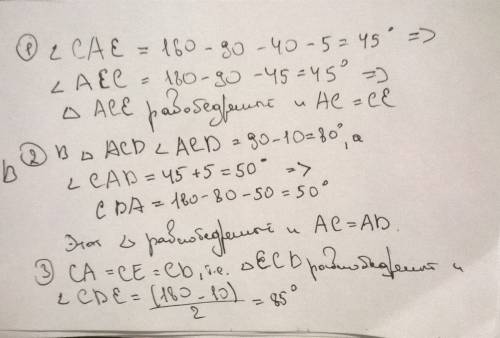 ① ∠ CAE = 180 - 90 - 40 - 5 = 45° =>
∠ AEC = 180 - 90 - 45 = 45° =>
△ ACE равнобедренный и AC = CE
② В △ ACD ∠ ACD = 90 - 10 = 80°, а
∠ CAD = 45 + 5 = 50° =>
CDA = 180 - 80 - 50 = 50°
Этот △ равнобедренный и AC = AD.
3 CA = CE = CD, т.е. △ ECD равнобедренный и
∠ CDE = (180 - 10) / 2 = 85°